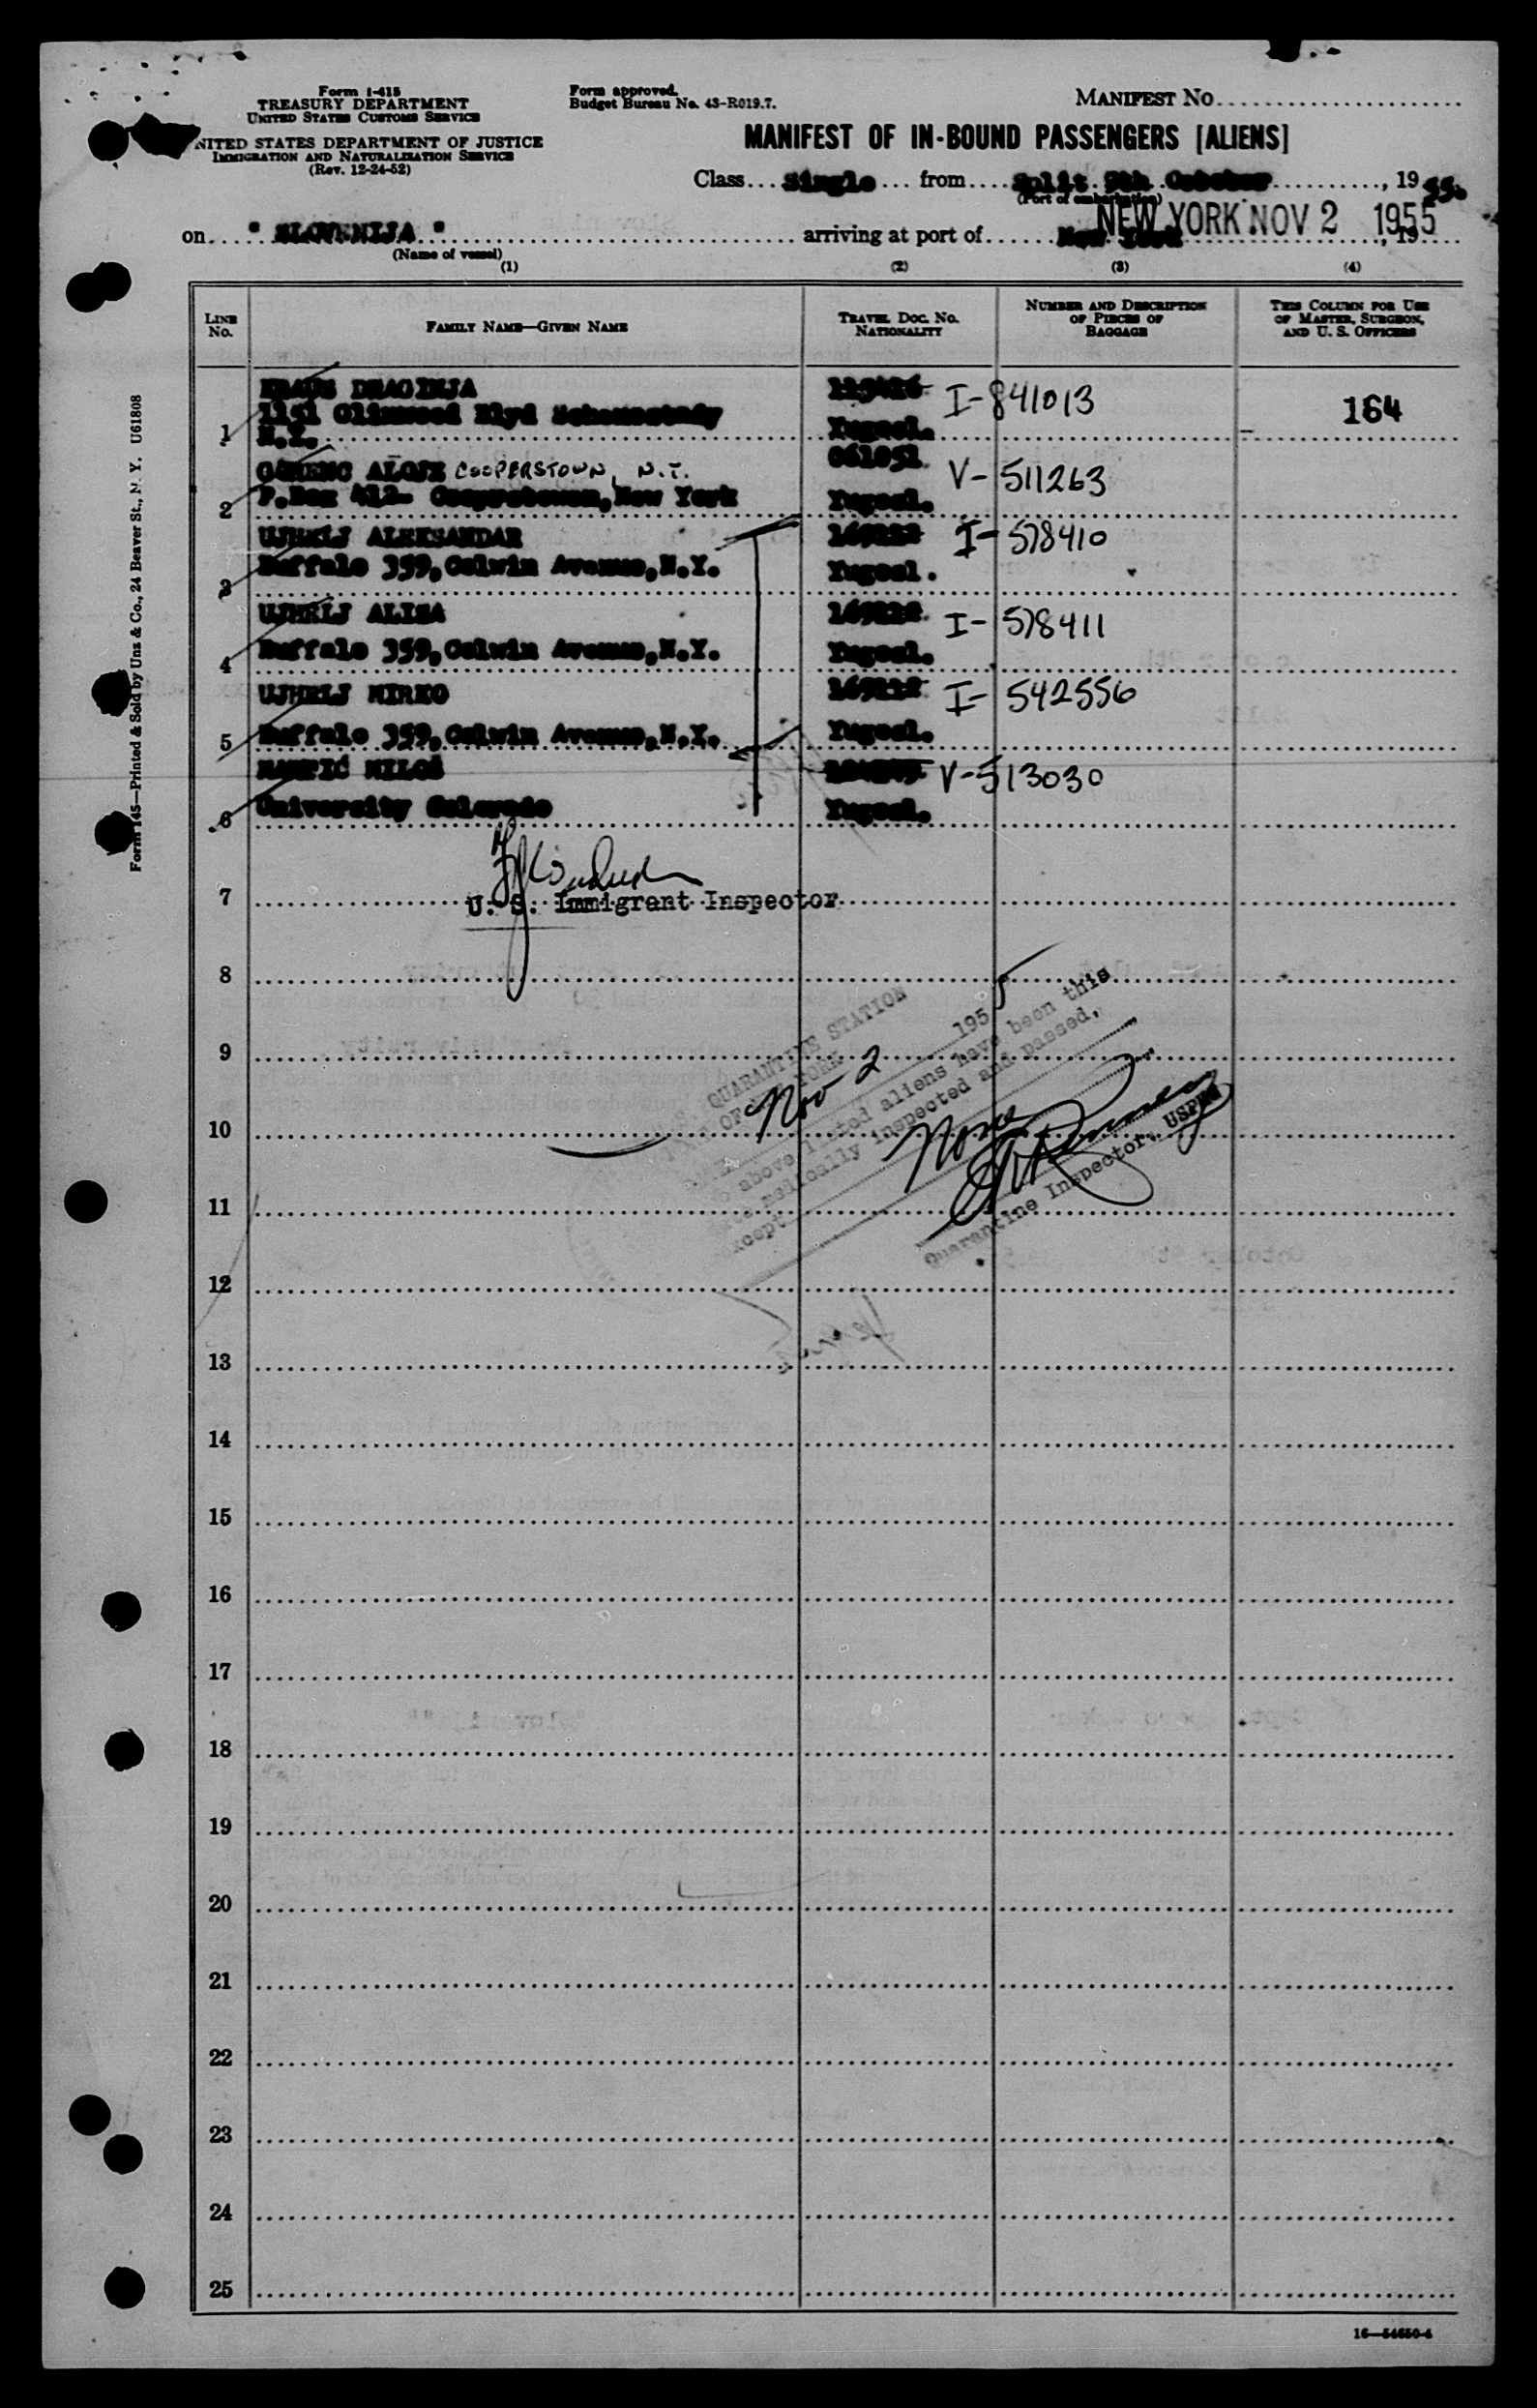 Form I-415
TREASURY DEPARTMENT
UNITED STATES CUSTOMS SERVICE
UNITED STATES DEPARTMENT OF JUSTICE
IMMIGRATION AND NATURALIZATION SERVICE
(Rev. 12-24-52)
Form approved.
Budget Bureau No. 43-R019.7.
MANIFEST NO
MANIFEST OF IN-BOUND PASSENGERS [ALIENS]
Class Single from Split 9th October, 1955.
(Port of embarkation)
on " SLOVENIJA " arriving at port of New York, 19
(Name of vessel)
NEW YORK NOV 2 1955
(1) (2) (3) (4)
LINE NO.
FAMILY NAME—GIVEN NAME
TRAVEL DOC. NO. NATIONALITY
NUMBER AND DESCRIPTION OF PIECES OF BAGGAGE
THIS COLUMN FOR USE OF MASTER, SURGEON, AND U. S. OFFICERS
DRAGINJA I-841013 164
1151 Blvd Schenectady
1 N.Y. Yugosl.
ALOJZ COOPERSTOWN, N.Y. 061051 V-511263
2 P.Box 412- New York Yugosl.
UJHELJ ALEKSANDAR I-578410
3 Buffalo 359, Colwin Avenue, N.Y. Yugosl.
UJHELJ ALISA I-578411
4 Buffalo 359, Colwin Avenue, N.Y. Yugosl.
UJHELJ MIRKO I-542556
5 Buffalo 359, Colwin Avenue, N.Y. Yugosl.
MILOŠ V-513030
6 University Colorado Yugosl.
7 U. S. Immigrant Inspector
8
9
10
11
12
13
14
15
16
17
18
19
20
21
22
23
24
25
U.S. QUARANTINE STATION
PORT OF NEW YORK
Nov 2 1955
The above listed aliens have been this
date medically inspected and passed,
except None
Quarantine Inspector, USPHS
Form 145—Printed & Sold by Unz & Co., 24 Beaver St., N. Y. U61808
16—54650-4